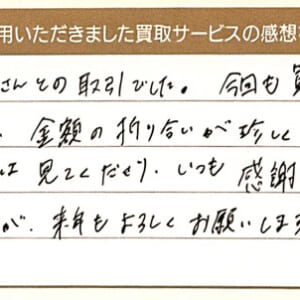 用いただきました買取サービスの感想
さんとの取引でした。今回も買
金額の折り合いが珍しく
は見てくださり、いつも感謝
が、来年もよろしくお願いしま